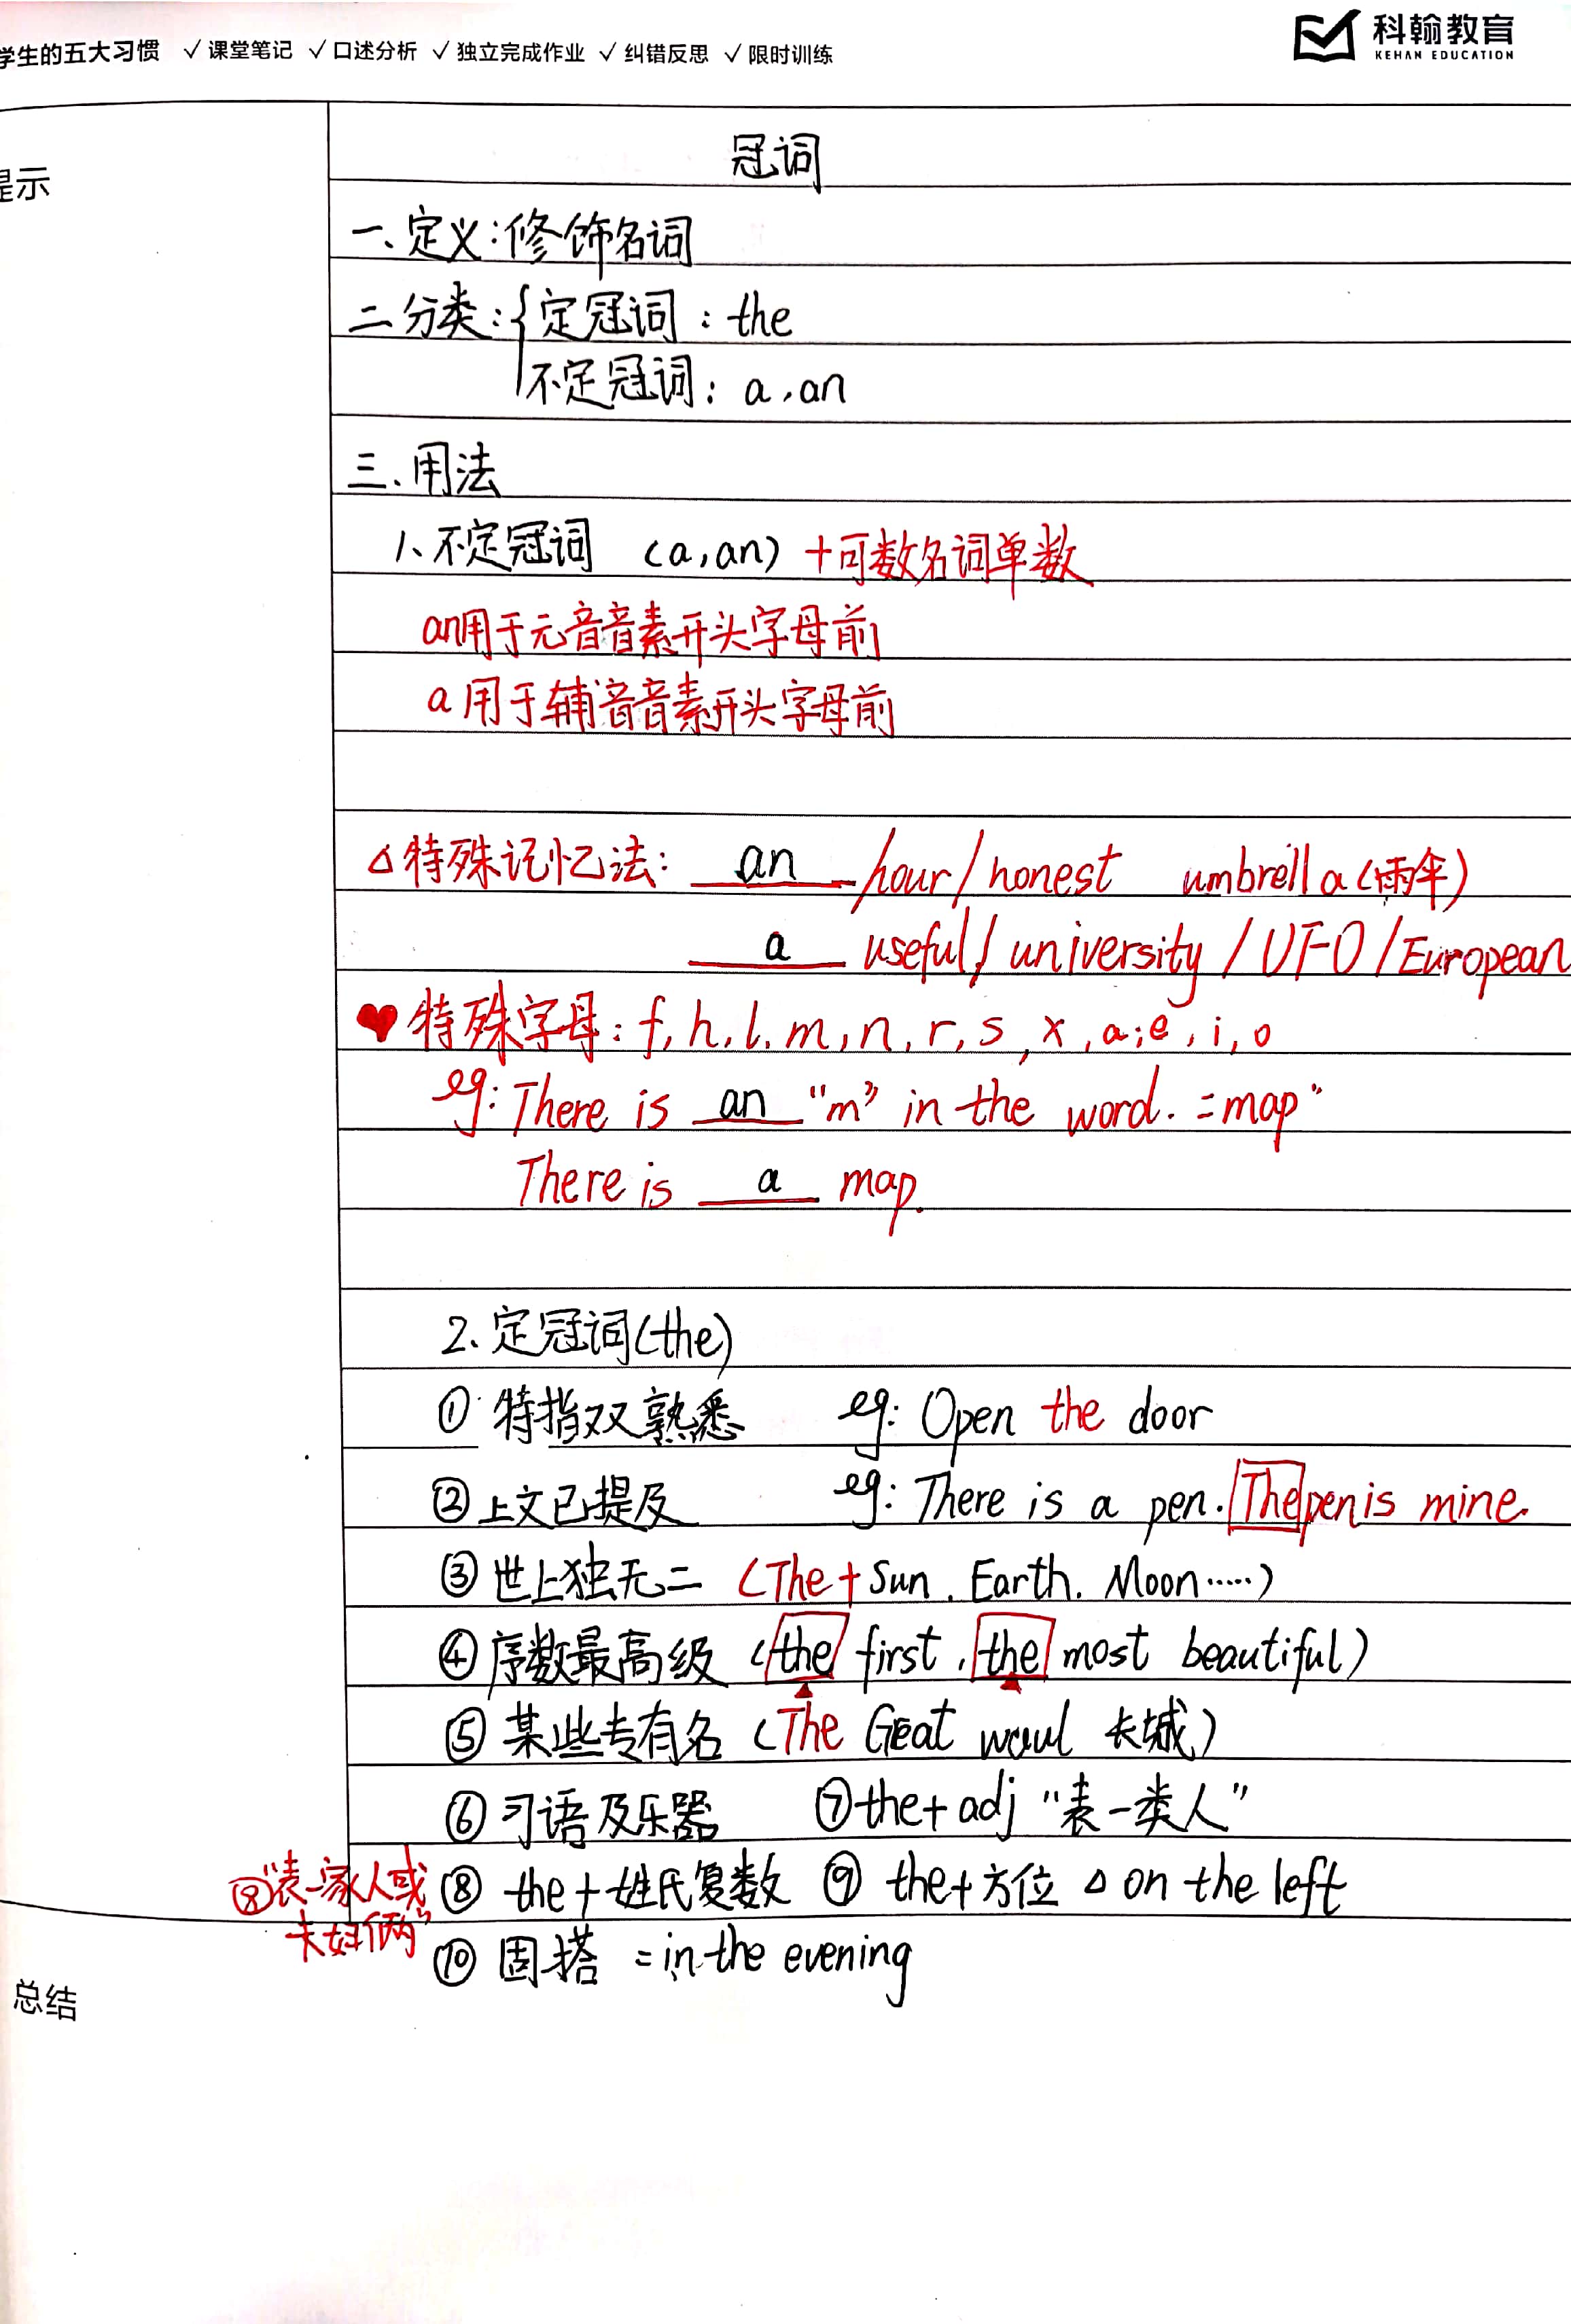 学生的五大习惯 √课堂笔记 √口述分析 √独立完成作业 √纠错反思 √限时训练
科翰教育
KEHAN EDUCATION
提示
冠词
一、定义:修饰名词
二分类:{定冠词:the
不定冠词:a,an
三、用法
1、不定冠词 (a,an)+可数名词单数
an用于元音音素开头字母前
a用于辅音音素开头字母前
△特殊记忆法: an /hour/honest umbrella(雨伞)
a useful/university/UFO/European
♥特殊字母:f,h,l,m,n,r,s,x,a;e,i,o
eg:There is an "m" in the word.=map"
There is a map.
2.定冠词(the)
① 特指双熟悉 eg: Open the door
②上文已提及 eg: There is a pen. The pen is mine.
③世上独无二 (The+Sun.Earth.Moon……)
④序数最高级 (the first,the most beautiful)
⑤某些专有名 (The Great waul 长城)
⑥习语及乐器 ⑦the+adj "表一类人"
⑧"表一家人或 ⑧ the+姓氏复数 ⑨ the+方位 △ on the left
夫妇俩" ⑩ 固搭 =in the evening
总结